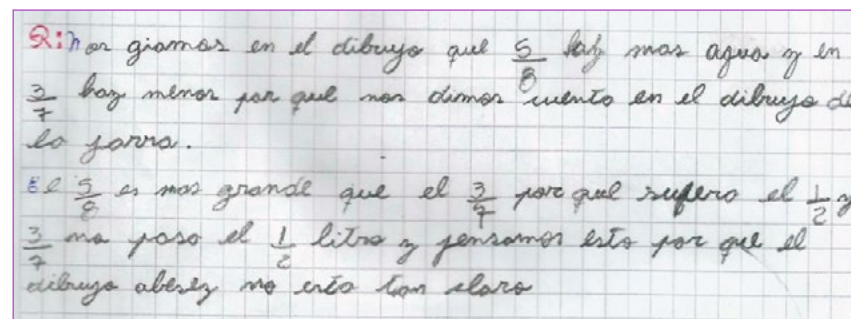 R: nos giamos en el dibuyo que 5/8 hay mas agua y en
3/7 hay menos por que nos dimos cuenta en el dibuyo de
la jarra.
El 5/8 es mas grande que el 3/7 por que supera el 1/2 y
3/7 no pasa el 1/2 litro y pensamos esto por que el
dibuyo abeses no esta tan claro